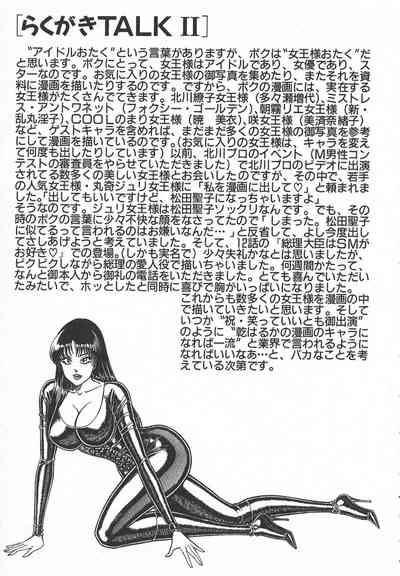 [らくがきTALK Ⅱ]
“アイドルおたく”という言葉がありますが、ボクは“女王様おたく”だ
と思います。ボクにとって、女王様はアイドルであり、女優であり、ス
ターなのです。お気に入りの女王様の御写真を集めたり、またそれを資
料に漫画を描いたりするのです。ですから、ボクの漫画には、実在する
女王様がたくさんでてきます。北川繚子女王様（多々瀬増代）、ミストレ
ス・アントワネット（ファクシー・ゴールデン）、朝霧リエ女王様（新・
乱丸淫子）、COOLのまり女王様（暁 美衣）、咲女王様（美済奈緒子）
など、ゲストキャラを含めれば、まだまだ多くの女王様の御写真を参考
にして漫画を描いているのです。（お気に入りの女王様は、キャラを変え
て何度も出したりしています）以前、北川プロのイベント（M男性コン
テストの審査員をやらせて頂きました）で北川プロのビデオに出演
されてる数多くの美しい女王様とお会いしたのですが、その中で、若手
の人気女王様・丸奇ジュリ女王様に「私を漫画に出して♡」と頼まれま
した。「出してもいいですけど、松田聖子になっちゃいますよ」
そうなのです。ジュリ女王様は松田聖子ソックリなんです。でも、その
時のボクの言葉に少々不快な顔をなさってたのでしまった。松田聖子
に似てるって言われるのはお嫌いなんだ…」と反省して、よし今度出し
てさしあげようと考えていました。そして、12話の「総理大臣はSMが
お好き♡」での登場。（しかも実名で）少々失礼かなとは思いましたが、
ビクビクしながら総理の愛人役で描いちゃいました。何週間かたって、
なんと御本人から御礼の電話をいただきました。とても喜んでいただい
たみたいで、ホッとしたと同時に喜びで胸がいっぱいになりました。
これからも数多くの女王様を漫画の中
で描いていきたいと思います。そして
いつか“祝・笑っていいとも御出演”
のように“乾はるかの漫画のキャラに
なれば一流”と業界で言われるように
なればいいなあ…と、バカなことを考
えている次第です。